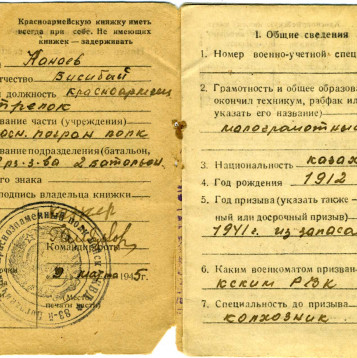 Красноармейскую книжку иметь
всегда при себе. Не имеющих
книжек — задерживать
Коноев
чество Висибай
и должность красноармеец
трелок
звание части (учреждения)
погран полк
вание подразделения (батальон,
2 батальон
ого знака
подпись владельца книжки
Командир роты
9 марта 1945г.
(Место
печати части)
I. Общие сведения
1. Номер военно-учетной спец
2. Грамотность и общее образова
окончил техникум, рабфак ил
указать его название)
малограмотны
3. Национальность казах
4. Год рождения 1912
5. Год призыва (указать также —
ный или досрочный призыв)
1941г. из запаса
6. Каким военкоматом призван
ским РВК
7. Специальность до призыва
колхозник